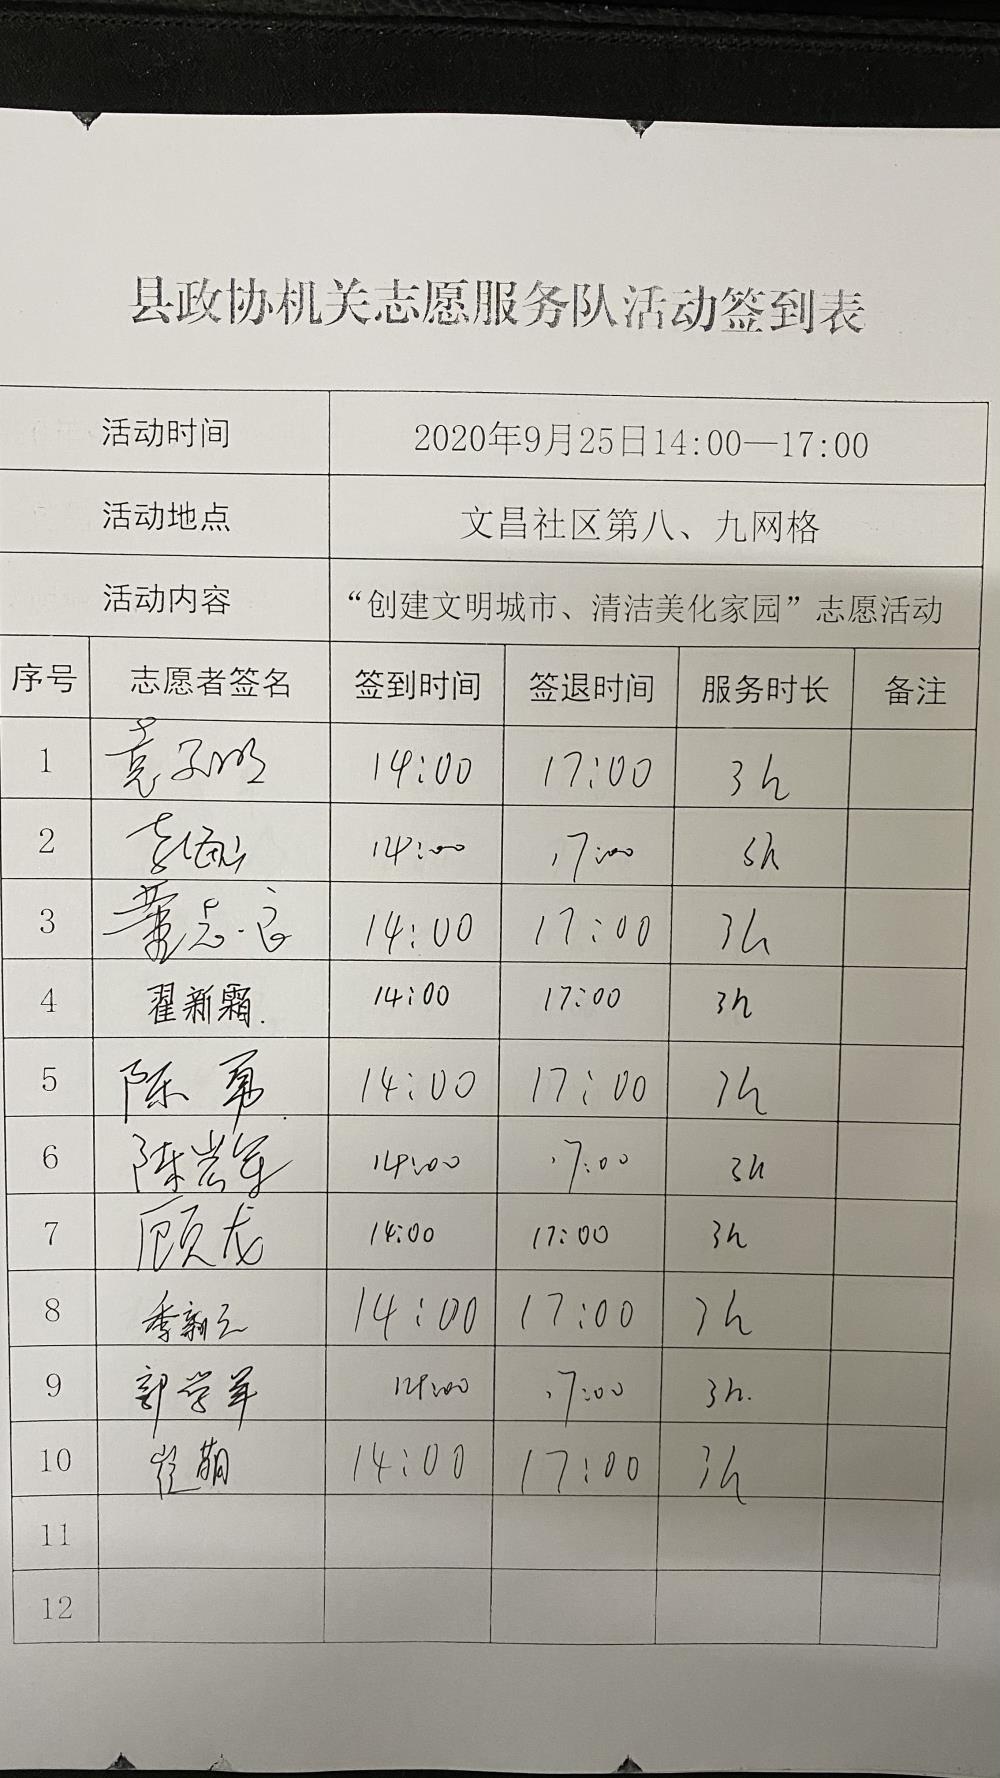 县政协机关志愿服务队活动签到表
活动时间 2020年9月25日14:00—17:00
活动地点 文昌社区第八、九网格
活动内容 “创建文明城市、清洁美化家园”志愿活动
序号 志愿者签名 签到时间 签退时间 服务时长 备注
1 14:00 17:00 3h
2 14:00 17:00 3h
3 董志良 14:00 17:00 3h
4 翟新霜. 14:00 17:00 3h
5 陈勇 14:00 17:00 3h
6 陈岩军 14:00 17:00 3h
7 顾龙 14:00 17:00 3h
8 季新云 14:00 17:00 3h
9 郭学军 14:00 17:00 3h.
10 14:00 17:00 3h
11
12